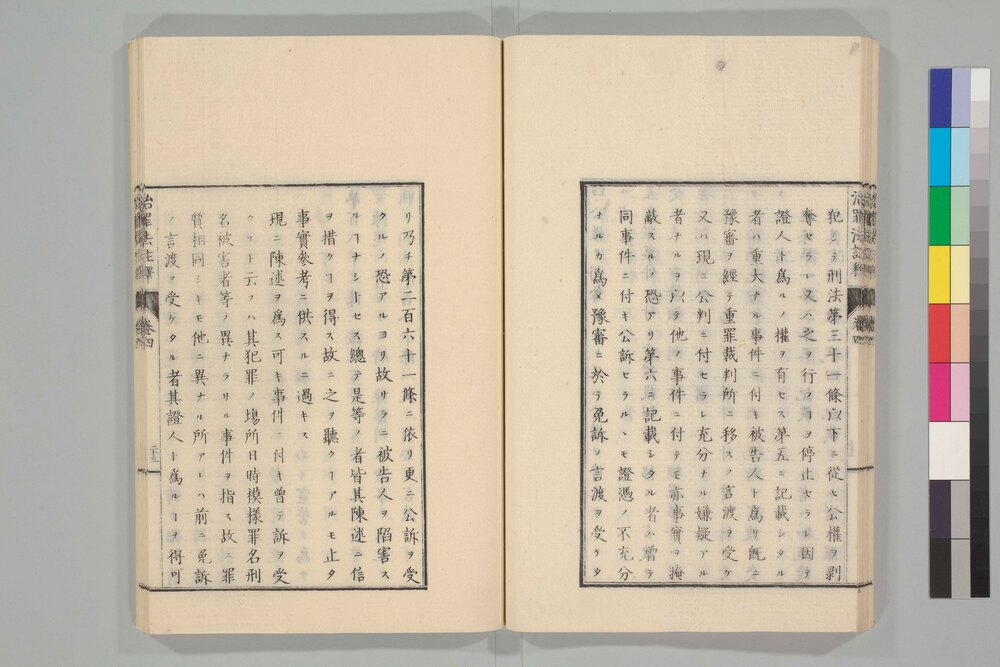 治罪法註釋 卷四
犯シテ刑法第三十一條以下ニ從ヒ公權ヲ剥
奪セラレ又ハ之ヲ行フヿヲ停止セラレ因テ
證人ト爲ルノ權ヲ有セス第五ニ記載シタル
者ハ重大ナル事件ニ付キ被告人ト爲リ既ニ
豫審ヲ經テ重罪裁判所ニ移スノ言渡ヲ受ケ
又ハ現ニ公判ニ付セラレ充分ナル嫌疑アル
者ナルヲ以テ他ノ事件ニ付テモ亦事實ヲ掩
蔽スルノ恐アリ第六ニ記載シタル者ハ曾テ
同事件ニ付キ公訴セラルヽモ證憑ノ不充分
ナルカ爲メ豫審ニ於テ免訴ノ言渡ヲ受ケタ
リ乃チ第二百六十一條ニ依リ更ニ公訴ヲ受
クルノ恐アルヨリ故サラニ被告人ヲ陷害ス
ルヿナシトセス總テ是等ノ者皆其陳述ニ信
ヲ措クヿヲ得ス故ニ之ヲ聽クヿアルモ止タ
事實參考ニ供スルニ過キス
現ニ陳述ヲ爲ス可キ事件ニ付キ曾テ訴ヲ受
ケリト云フハ其犯罪ノ塲所日時模様罪名刑
名被害者等ノ異ナラサル事件ヲ指ス故ニ罪
質相同シキモ他ニ異ナル所アレハ前ニ免訴
ノ言渡ヲ受ケタル者其證人ト爲ルヿヲ得可
治罪法註釋 卷四